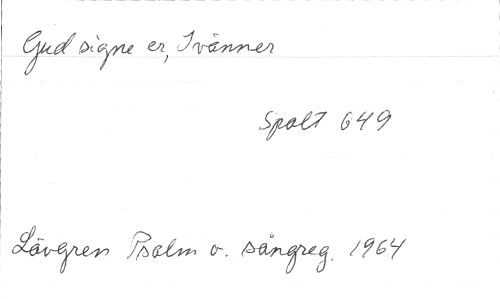 Gud signe er, I vänner
Spalt 649
Lövgren Psalm o. sångreg. 1964